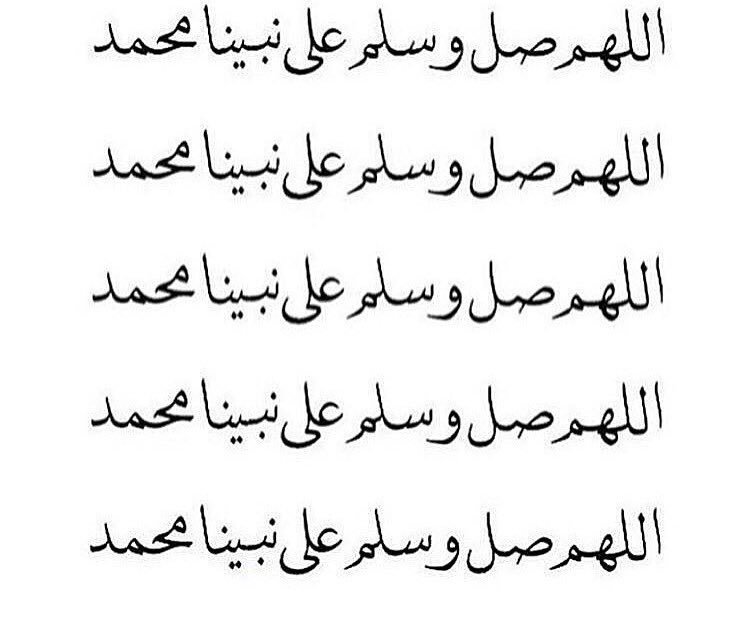 اللهم صل وسلم على نبينا محمد
اللهم صل وسلم على نبينا محمد
اللهم صل وسلم على نبينا محمد
اللهم صل وسلم على نبينا محمد
اللهم صل وسلم على نبينا محمد